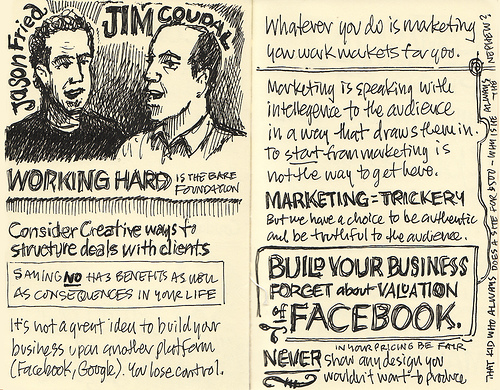 Jason Fried
JIM COUDAL
WORKING HARD IS THE BARE
FOUNDATION
Consider Creative ways to
structure deals with clients
SAYING NO HAS BENEFITS AS WELL
AS CONSEQUENCES IN YOUR LIFE
It's not a great idea to build your
business upon another platform
(Facebook, Google). You lose control.
Whatever you do is marketing
you work markets for you.
Marketing is speaking with
intellegence to the audience
in a way that draws them in.
To start from marketing is
not the way to get here.
MARKETING = TRICKERY
But we have a choice to be authentic
and be truthful to the audience.
BUILD YOUR BUSINESS
FORGET about VALUATION
of FACEBOOK.
IN YOUR PRICING BE FAIR
NEVER show any design you
wouldn't want to produce
THAT KID WHO ALWAYS DOES A SITE FOR $500 - WHY IS HE ALWAYS
THE NEPHEW?